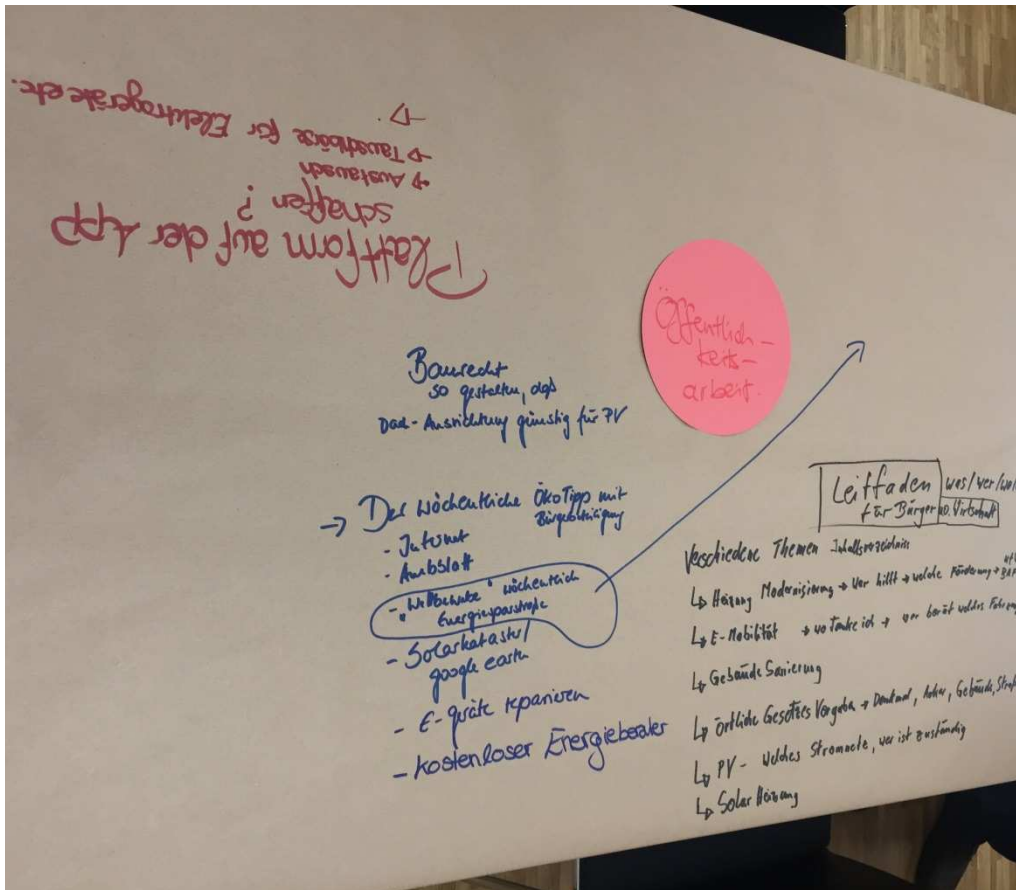 Plattform auf der App
schaffen?
→ Austausch
→ Tauschbörse für Elektrogeräte etc.
→
Öffentlich-
keits-
arbeit.
Baurecht
so gestalten, daß
Dach-Ausrichtung günstig für PV
→ Der wöchentliche ÖkoTipp mit
Bürgerbeteiligung
- Internet
- Amtsblatt
- "Wettbewerbe" wöchentlich
Energiesparstraße
- Solarkataster/
google earth
- E-geräte reparieren
- kostenloser Energieberater
Leitfaden was/wer/
für Bürger u. Wirtschaft
Verschiedene Themen Inhaltsverzeichnis
↳ Heizung Modernisierung → Wer hilft → welche Förderung →
↳ E-Mobilität → wo Tanke ich → wer berät welches
↳ Gebäude Sanierung
↳ örtliche Gesetzes Vorgaben → Denkmal, Gebäude,
↳ PV - Welches Stromnetz, wer ist zuständig
↳ Solar Heizung